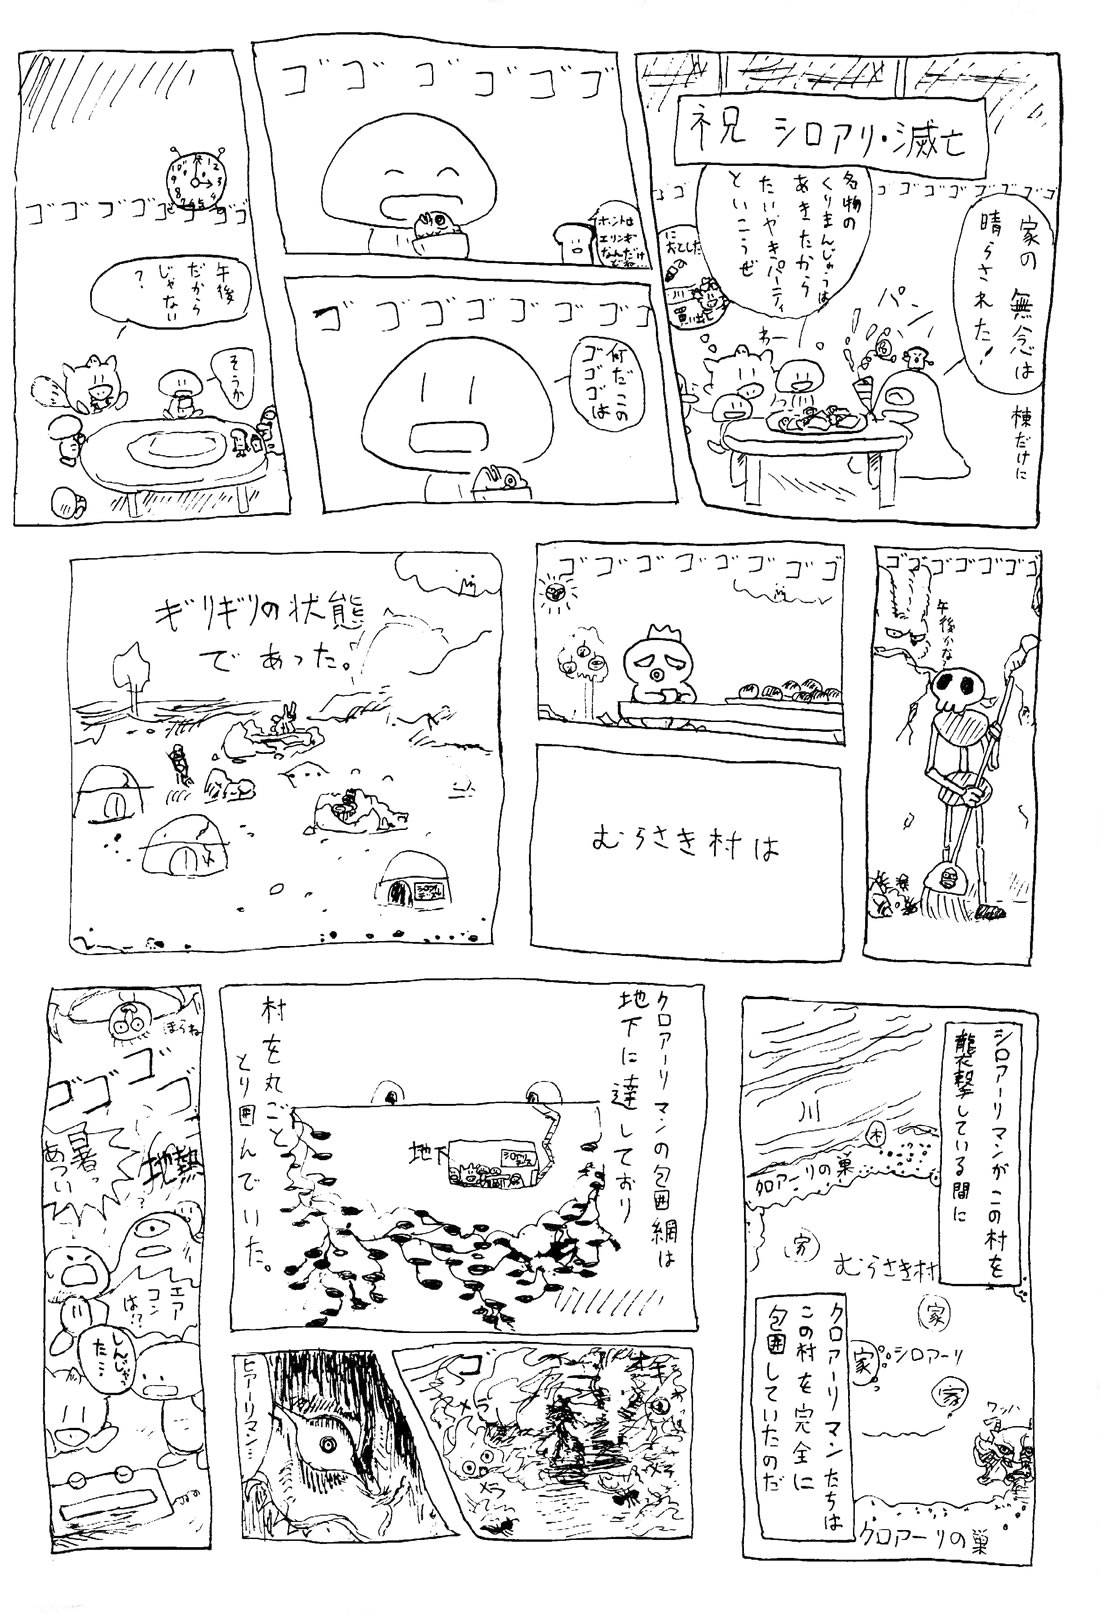 祝 シロアリ・滅亡
ゴゴゴゴゴゴゴゴゴ
家の無念は
晴らされた!
棟だけに
パン
名物の
くりまんじゅうは
あきたから
たいやきパーティ
といこうぜ
わー
におとした
川
買い出し
ゴゴゴゴゴゴ
ホントは
エリンギ
なんだけ
どね
ゴゴゴゴゴゴゴゴ
何だこの
ゴゴゴは
12
ゴゴゴゴゴゴゴゴ
午後
だから
じゃない
?
そうか
ゴゴゴゴゴゴゴ
午後かな?
ゴゴゴゴゴゴゴゴ
むらさき村は
ギリギリの状態
であった。
シロアーリマンがこの村を
襲撃している間に
川
木
クロアーリの巣
家
むらさき村
家
家
シロアーリ
家
ワッハ
クロアーリマンたちは
この村を完全に
包囲していたのだ
クロアーリの巣
クロアーリマンの包囲網は
地下に達しており
地下
村を丸ごと
とり囲んでいた。
ゴ
メラ
メラ
メラ
ヒアーリマン
ほらね
ゴゴゴゴ
地熱
?
暑っ
あつい
エア
コン
は!?
しんじゃっ
た…